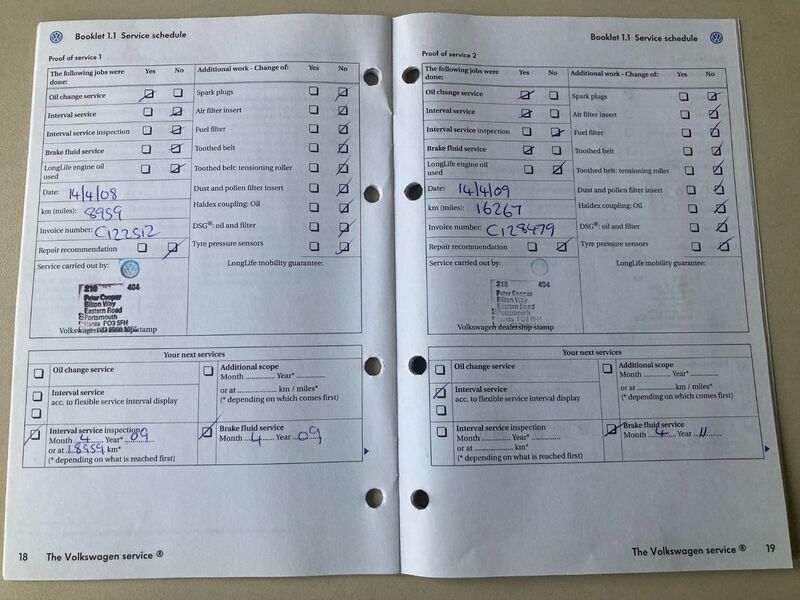 Booklet 1.1 Service schedule
Proof of service 1
The following jobs were done: Yes No
Additional work - Change of: Yes No
Oil change service
Spark plugs
Interval service
Air filter insert
Interval service inspection
Fuel filter
Brake fluid service
Toothed belt
LongLife engine oil used
Toothed belt: tensioning roller
Date: 14/4/08
Dust and pollen filter insert
km (miles): 8959
Haldex coupling: Oil
Invoice number: C122512
DSG®: oil and filter
Repair recommendation
Tyre pressure sensors
Service carried out by:
LongLife mobility guarantee:
210 404
Peter Cooper
Bilton Way
Eastern Road
Portsmouth
Hants PO3 5FH
Volkswagen dealership stamp
Your next services
Oil change service
Additional scope
Month .............. Year* ..............
or at .............. km / miles*
(* depending on which comes first)
Interval service
acc. to flexible service interval display
Interval service inspection
Month 4 Year* 09
or at 18959 km*
(* depending on what is reached first)
Brake fluid service
Month 4 Year 09
18 The Volkswagen service ®
Booklet 1.1 Service schedule
Proof of service 2
The following jobs were done: Yes No
Additional work - Change of: Yes No
Oil change service
Spark plugs
Interval service
Air filter insert
Interval service inspection
Fuel filter
Brake fluid service
Toothed belt
LongLife engine oil used
Toothed belt: tensioning roller
Date: 14/4/09
Dust and pollen filter insert
km (miles): 16267
Haldex coupling: Oil
Invoice number: C128479
DSG®: oil and filter
Repair recommendation
Tyre pressure sensors
Service carried out by:
LongLife mobility guarantee:
210 404
Peter Cooper
Bilton Way
Eastern Road
Portsmouth
Hants PO3 5FH
Volkswagen dealership stamp
Your next services
Oil change service
Additional scope
Month .............. Year* ..............
or at .............. km / miles*
(* depending on which comes first)
Interval service
acc. to flexible service interval display
Interval service inspection
Month .............. Year* ..............
or at .............. km*
(* depending on what is reached first)
Brake fluid service
Month 4 Year 11
The Volkswagen service ® 19